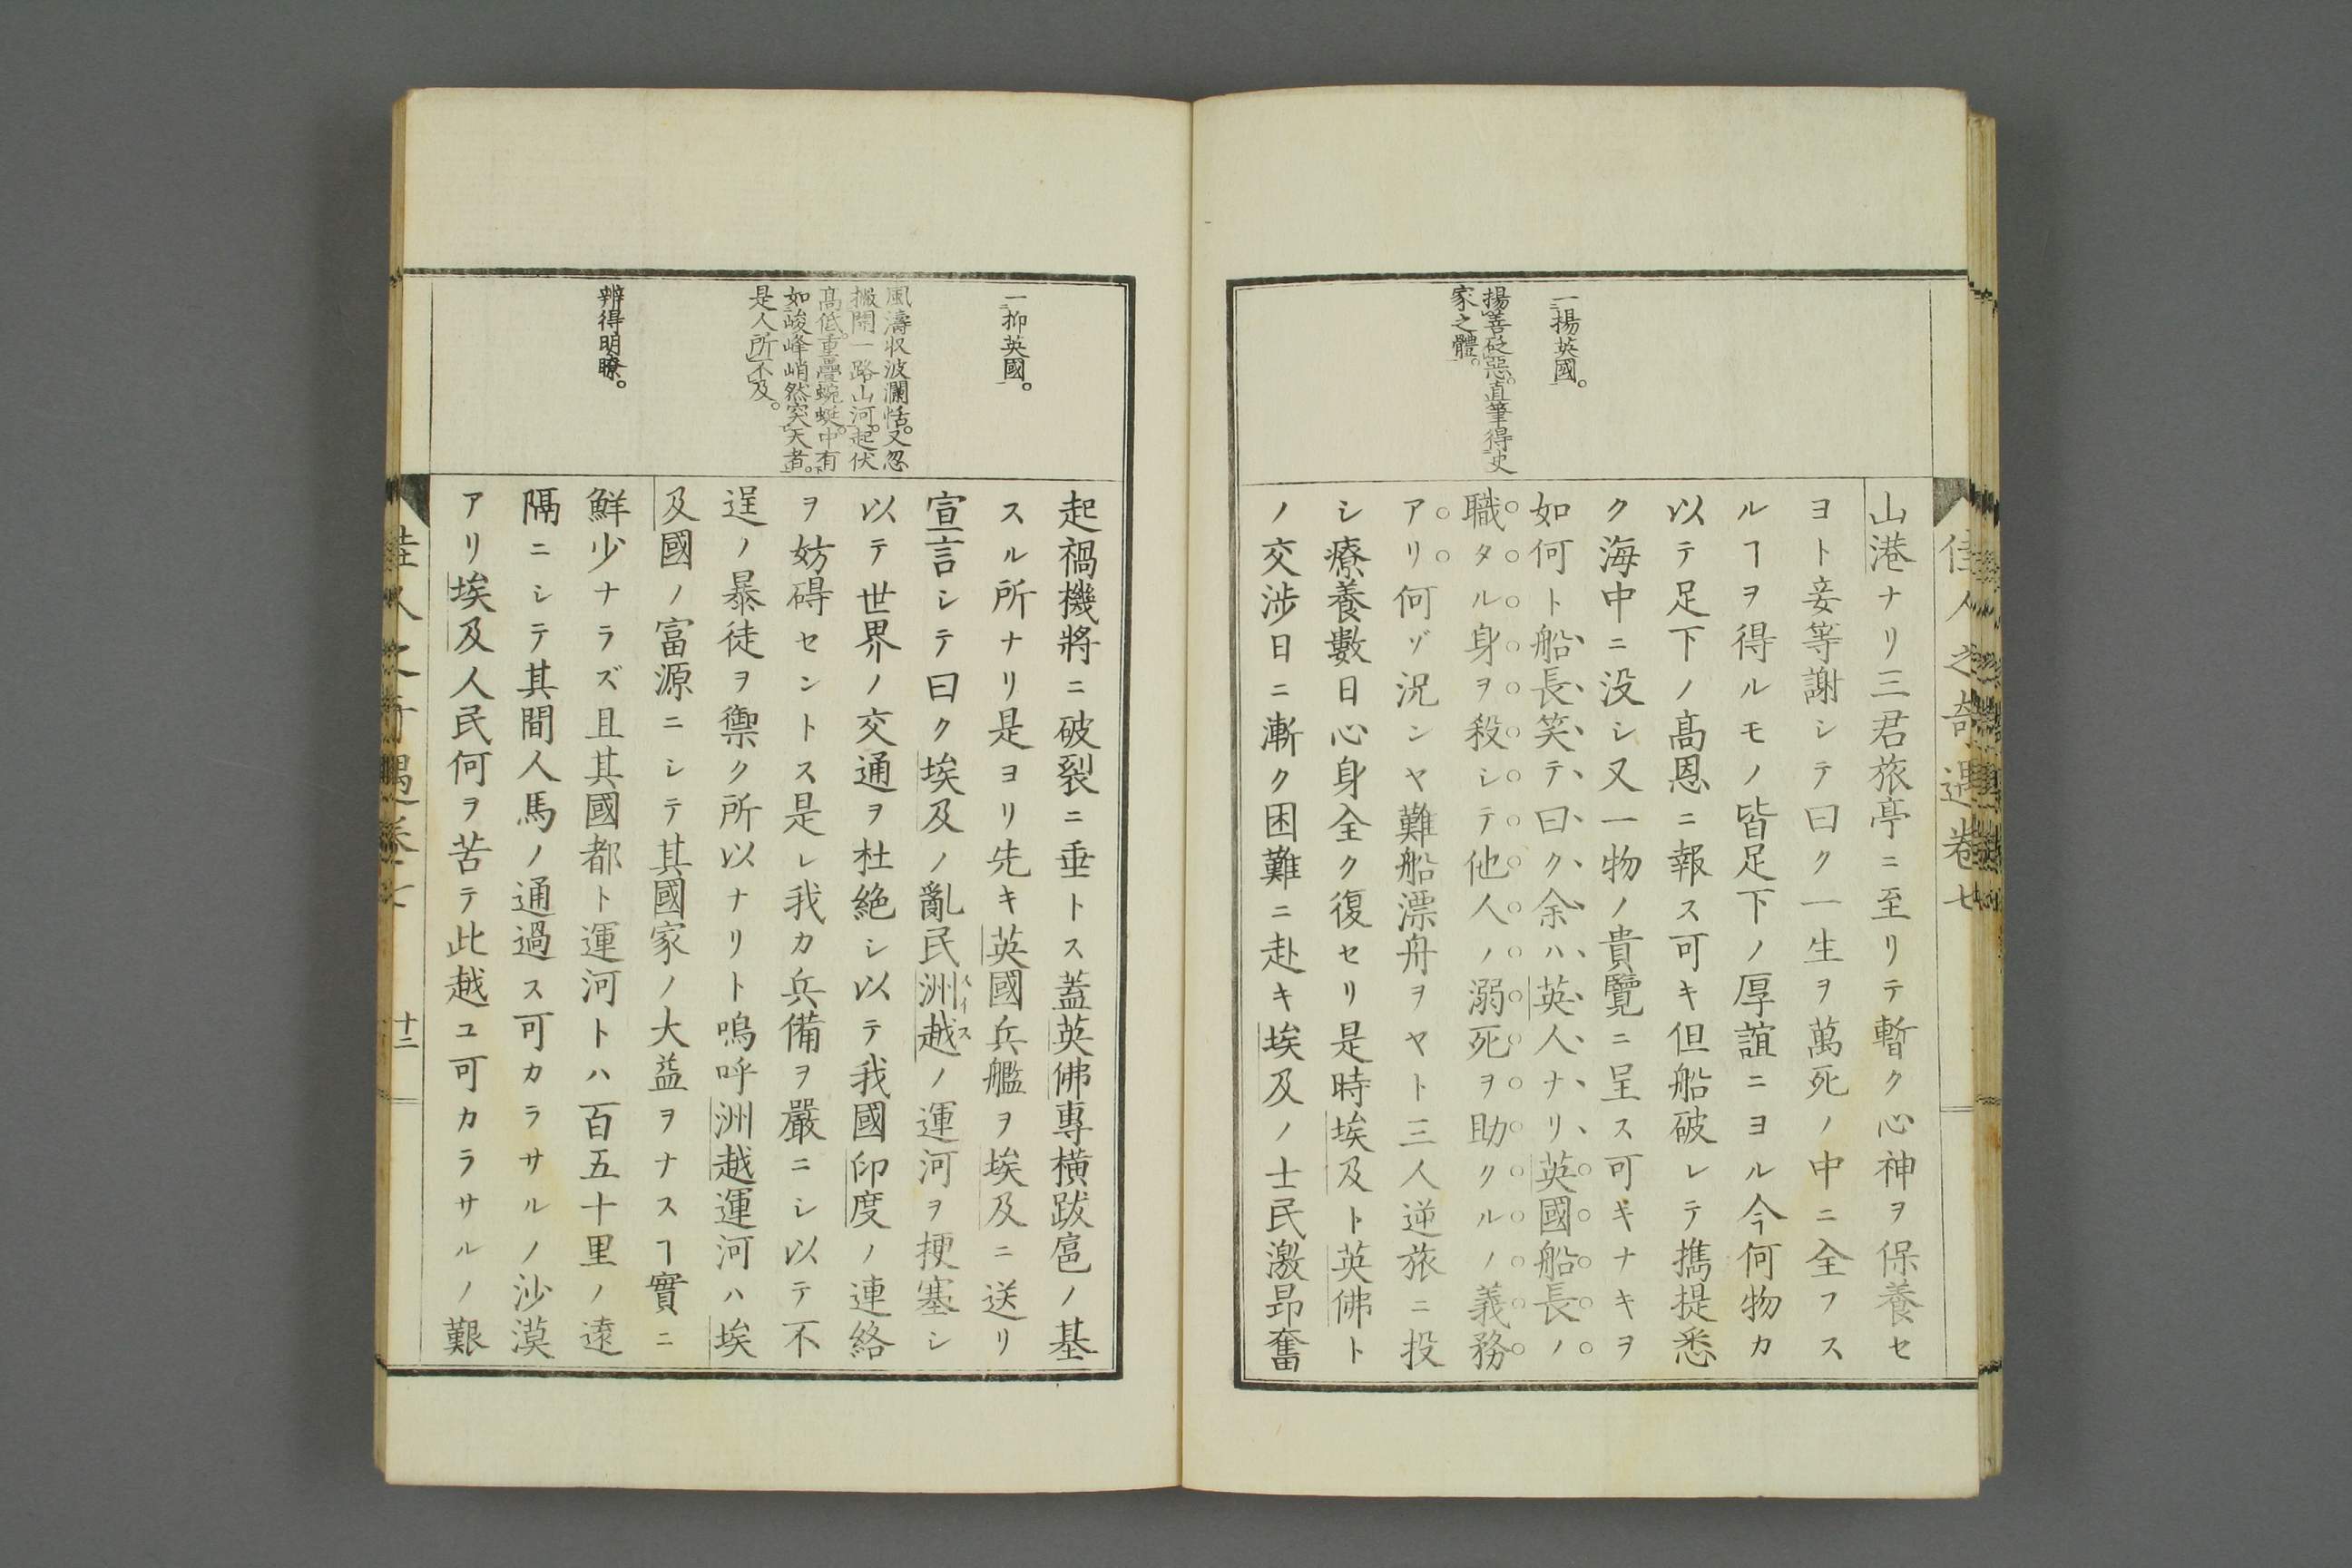 佳人之奇遇卷七
一揚英國。
揚善砭惡。直筆得史
家之體。
山港ナリ三君旅亭ニ至リテ暫ク心神ヲ保養セ
ヨト妾等謝シテ曰ク一生ヲ萬死ノ中ニ全フス
ルヿヲ得ルモノ皆足下ノ厚誼ニヨル今何物カ
以テ足下ノ髙恩ニ報ス可キ但船破レテ携提悉
ク海中ニ没シ又一物ノ貴覽ニ呈ス可キナキヲ
如何ト船長笑テ曰ク余ハ英人ナリ英國船長ノ
職タル身ヲ殺シテ他人ノ溺死ヲ助クルノ義務
アリ何ゾ況ンヤ難船漂舟ヲヤト三人逆旅ニ投
シ療養數日心身全ク復セリ是時埃及ト英佛ト
ノ交渉日ニ漸ク困難ニ赴キ埃及ノ士民激昂奮
一抑英國。
風濤収波瀾恬。又忽
撇開一路山河。起伏
髙低。重疊蜿蜒。中有
如峻峰峭然突天者。
是人所不及。
辨得明瞭。
起禍機將ニ破裂ニ垂トス蓋英佛專横跋扈ノ基
スル所ナリ是ヨリ先キ英國兵艦ヲ埃及ニ送リ
宣言シテ曰ク埃及ノ亂民洲越ノ運河ヲ梗塞シ
スイス
以テ世界ノ交通ヲ杜絶シ以テ我國印度ノ連絡
ヲ妨碍セントス是レ我カ兵備ヲ嚴ニシ以テ不
逞ノ暴徒ヲ禦ク所以ナリト嗚呼洲越運河ハ埃
及國ノ富源ニシテ其國家ノ大益ヲナスヿ實ニ
鮮少ナラズ且其國都ト運河トハ百五十里ノ遠
隔ニシテ其間人馬ノ通過ス可カラサルノ沙漠
アリ埃及人民何ヲ苦テ此越ユ可カラサルノ艱
佳人之奇遇卷七
十二